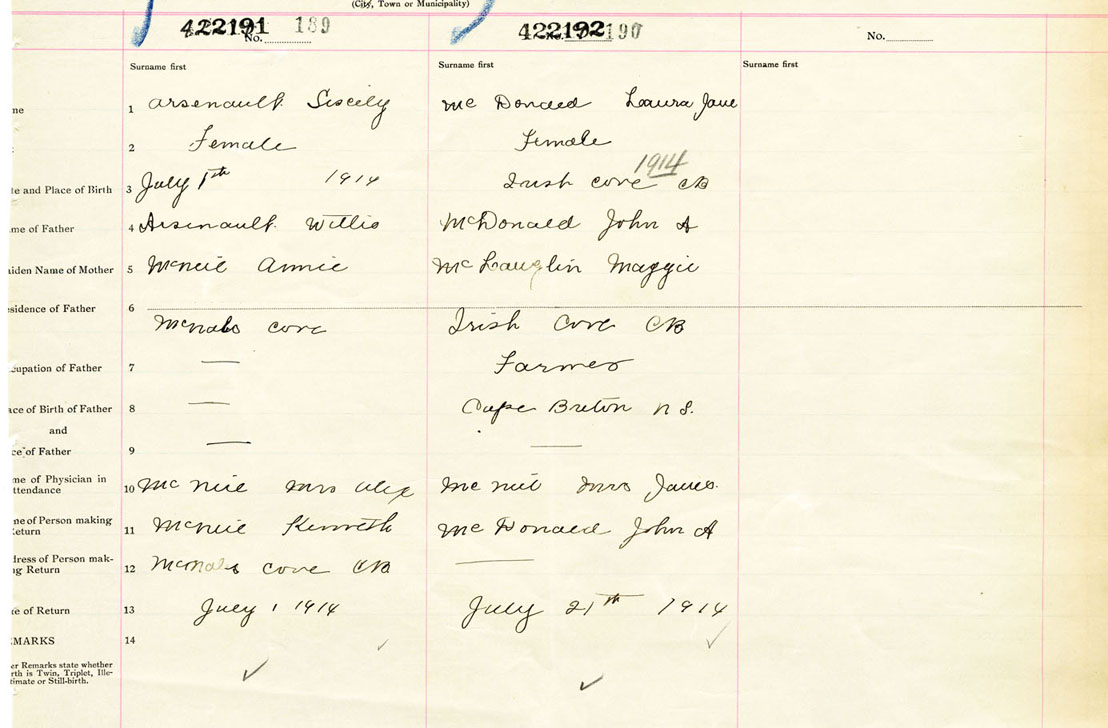 (City, Town or Municipality)
422191 189
No.
422192 190
No.
No.
Surname first
Surname first
Surname first
me
1 Arsenault Siscily
Mc Donald Laura Jane
2 Female
Female
te and Place of Birth
3 July 1th 1914
1914
Irish cove CB
me of Father
4 Arsenault Willis
McDonald John A
aiden Name of Mother
5 McNeil Annie
Mc Lauglin Maggie
esidence of Father
6
McNabs cove
Irish Cove CB
cupation of Father
7 —
Farmer
ace of Birth of Father
8 —
Cape Breton N S.
and
ce of Father
9 —
—
me of Physician in
ttendance
10 Mc Neil Mrs Alex
Mc Neil Mrs James.
ne of Person making
eturn
11 McNeil Kenneth
Mc Donald John A
dress of Person mak-
ng Return
12 McNabs cove CB
—
e of Return
13 July 1 1914
July 21th 1914
EMARKS
14
er Remarks state whether
rth is Twin, Triplet, Ille-
timate or Still-birth.